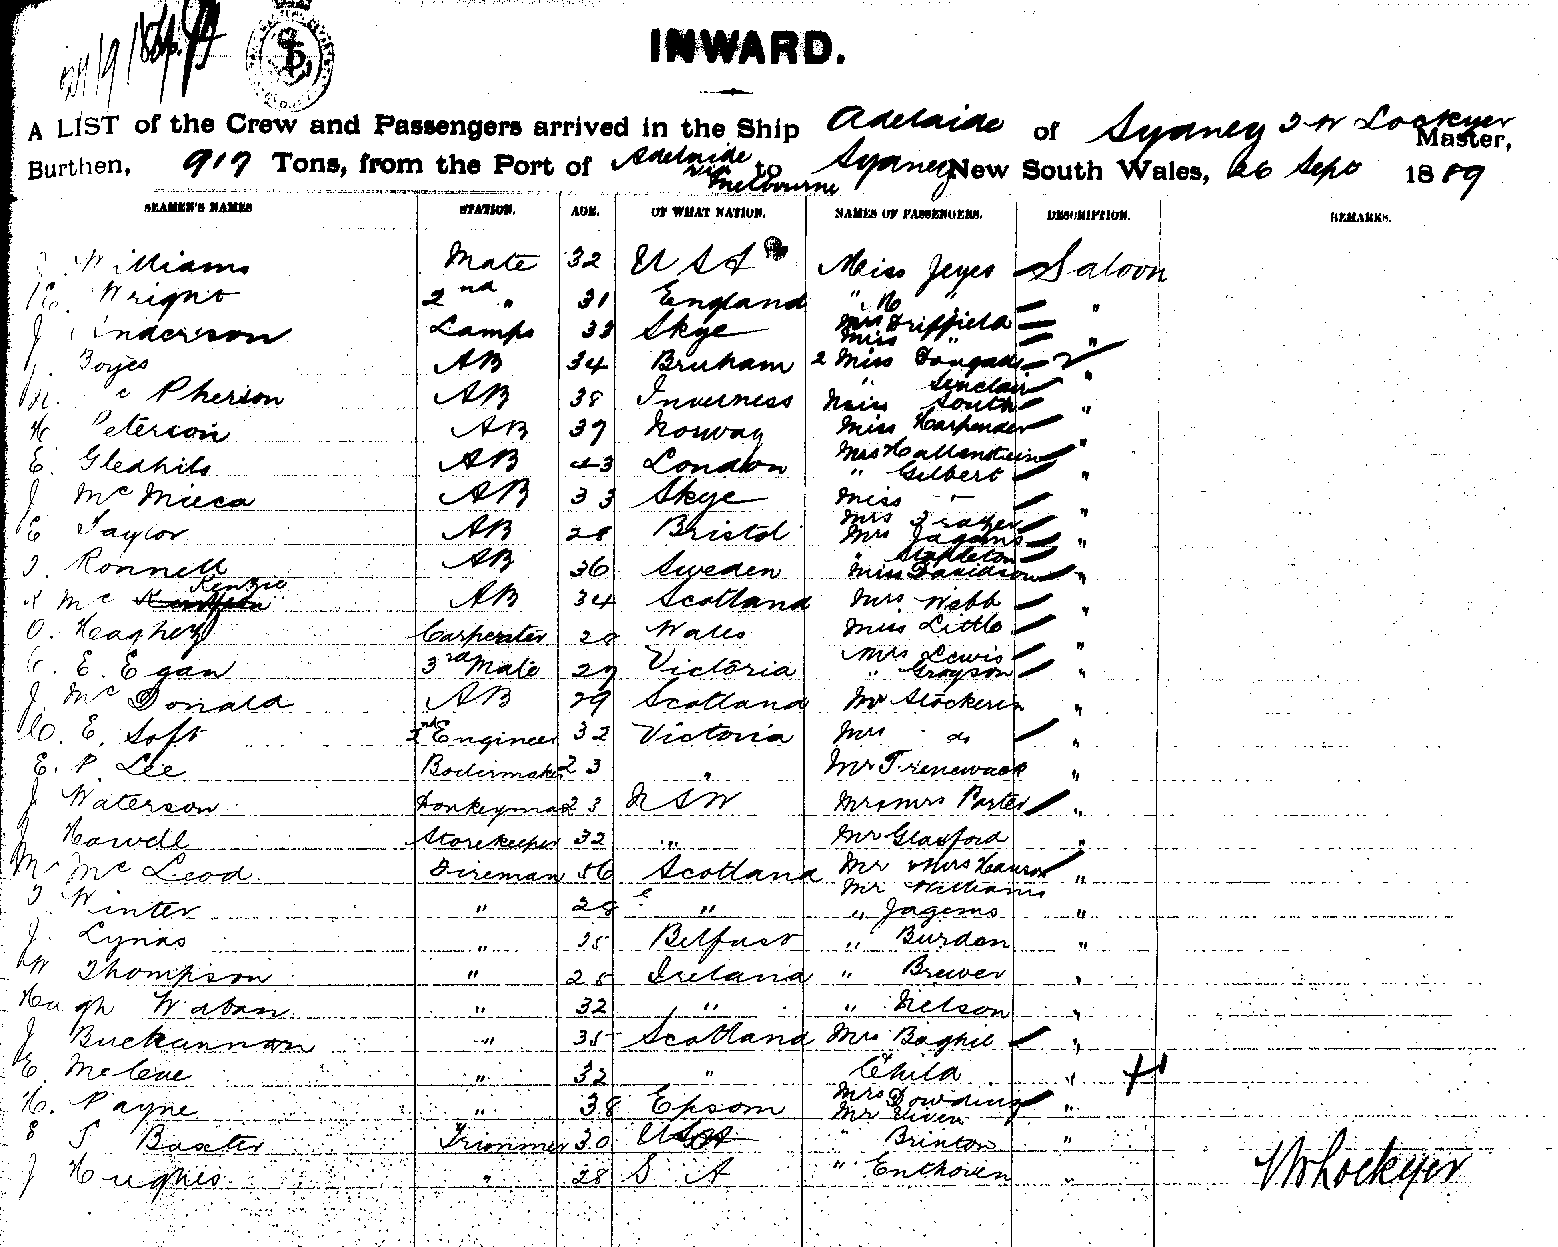 INWARD.
A LIST of the Crew and Passengers arrived in the Ship Adelaide of Sydney J W Lockyer Master,
Burthen, 917 Tons, from the Port of Adelaide via Melbourne to Sydney New South Wales, 26 Sep 1889
SEAMEN'S NAMES STATION. AGE. OF WHAT NATION. NAMES OF PASSENGERS. DESCRIPTION. REMARKS.
Williams Mate 32 USA Miss Jeyes Saloon
Wright 2nd " 31 England " M " "
J Anderson Lamps 33 Skye Mrs Driffield
Miss " "
Boyes AB 34 2 Miss
" Sinclair "
Mc Pherson AB 38 Inverness Miss South "
H. Peterson AB 37 Norway Miss Karpender "
E. Gledhils AB 43 London Mrs Hallenstein
" Gilbert "
J Mc AB 33 Skye Miss "
E Taylor AB 28 Bristol Mrs Frazer
Mrs Jagems "
Ronnell AB 36 Sweden " Stapleton
Miss Davidson "
Mc Kenzie AB 34 Scotland Mrs Webb "
O. Heaghey Carpenter 20 Wales Miss Little "
E. Egan 3rd Mate 27 Victoria Mrs Lewis
" Grayson "
J. Mc Donald AB 29 Scotland Mr Stockerin "
E. Soft 2nd Engineer 32 Victoria Mrs do "
E. P. Lee Boilermaker 23 " Mr "
J Waterson Donkeyman 23 NSW Mr & Mrs Porter "
J Howell Storekeeper 32 " Mr Glasford "
M Mc Leod Fireman 56 Scotland Mr & Mrs
Mr Williams "
Winter " 28 " " Jagems "
J. Lynas " 25 Belfast " Burden "
W Thompson " 25 Ireland " Brewer "
Hugh Waban " 32 " " Nelson "
J Buckannan " 35 Scotland Mrs Baghil "
E. McCue " 32 " Child "
H. Payne " 38 Epsom Mrs Dowding
Mr Viven "
Baxter Trimmer 30 USA " Brinton "
J Hughes " 28 S A " Enthoven "
Lockyer